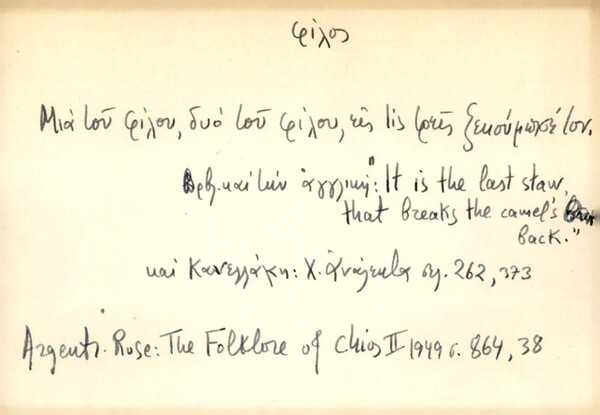 φίλος
Μιὰ τοῦ φίλου, δυὸ τοῦ φίλου, τὶς τρεῖς ξεκούμπωσέ τον.
Πρβ. καὶ τὴν ἀγγλική: "It is the last staw,
that breaks the camel's
back."
καὶ Κανελλάκη: Χ. Ἀνάλεκτα σελ. 262, 373
Argenti. Rose: The Folklore of Chios II 1949 σ. 864, 38